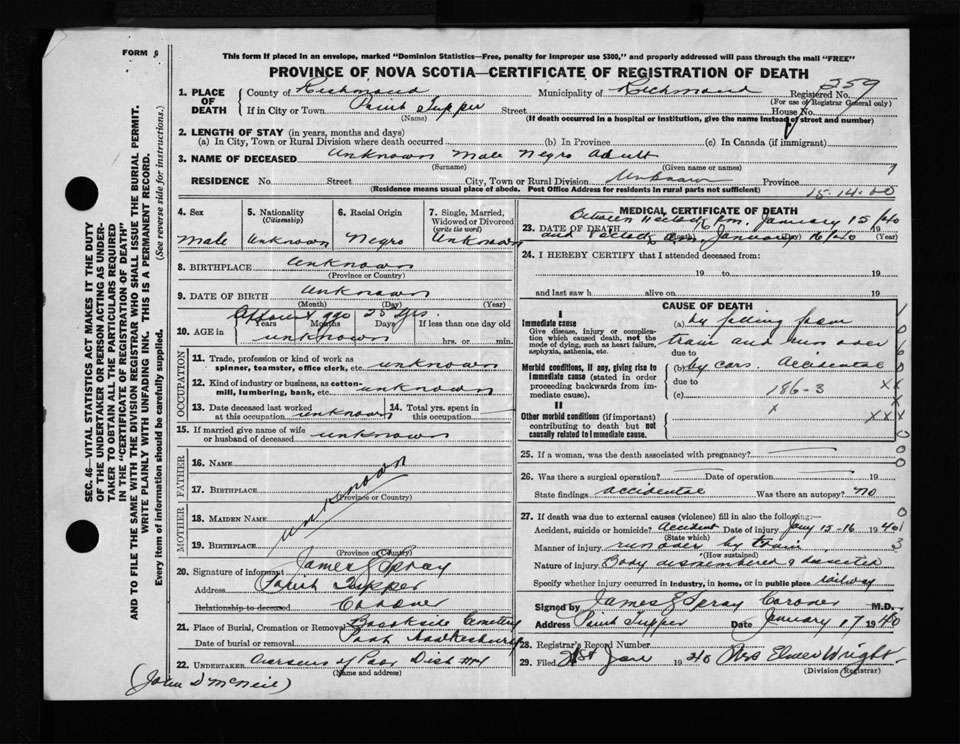 FORM 6
This form if placed in an envelope, marked "Dominion Statistics—Free, penalty for improper use $300," and properly addressed will pass through the mail "FREE"
PROVINCE OF NOVA SCOTIA—CERTIFICATE OF REGISTRATION OF DEATH
SEC. 46—VITAL STATISTICS ACT MAKES IT THE DUTY
OF THE UNDERTAKER OR PERSON ACTING AS UNDER-
TAKER TO OBTAIN ALL THE PARTICULARS REQUIRED
IN THE "CERTIFICATE OF REGISTRATION OF DEATH"
AND TO FILE THE SAME WITH THE DIVISION REGISTRAR WHO SHALL ISSUE THE BURIAL PERMIT.
WRITE PLAINLY WITH UNFADING INK. THIS IS A PERMANENT RECORD.
Every item of information should be carefully supplied. (See reverse side for instructions.)
1. PLACE OF DEATH County of Richmond Municipality of Richmond Registered No. 259
(For use of Registrar General only)
If in City or Town Point Tupper Street House No.
(Name) (If death occurred in a hospital or institution, give the name instead of street and number)
2. LENGTH OF STAY (in years, months and days)
(a) In City, Town or Rural Division where death occurred (b) In Province (c) In Canada (if immigrant)
3. NAME OF DECEASED Unknown Male Negro Adult
(Surname) (Given name or names)
RESIDENCE No. Street City, Town or Rural Division Unknown Province
(Residence means usual place of abode. Post Office Address for residents in rural parts not sufficient)
15-14-00
4. Sex Male
5. Nationality (Citizenship) Unknown
6. Racial Origin Negro
7. Single, Married, Widowed or Divorced (write the word) Unknown
8. BIRTHPLACE Unknown
(Province or Country)
9. DATE OF BIRTH Unknown
(Month) (Day) (Year)
10. AGE in Years Months Days If less than one day old
unknown hrs. or min.
25 yrs.
OCCUPATION
11. Trade, profession or kind of work as spinner, teamster, office clerk, etc. unknown
12. Kind of industry or business, as cotton-mill, lumbering, bank, etc. unknown
13. Date deceased last worked at this occupation unknown
14. Total yrs. spent in this occupation
15. If married give name of wife or husband of deceased unknown
FATHER
16. NAME
17. BIRTHPLACE
(Province or Country)
MOTHER
18. MAIDEN NAME
19. BIRTHPLACE
(Province or Country)
unknown
20. Signature of informant James E Spray
Address Point Tupper
Relationship to deceased Coroner
21. Place of Burial, Cremation or Removal Brookside Cemetery
Date of burial or removal Port Hawkesbury
22. UNDERTAKER Overseers of Poor Dist #4
(Name and address)
(John D McNeil)
MEDICAL CERTIFICATE OF DEATH
Between 11 oclock p.m. January 15/40
23. DATE OF DEATH
and January 16/40
(Month) (Day) (Year)
24. I HEREBY CERTIFY that I attended deceased from:
19 to 19
and last saw h alive on 19
CAUSE OF DEATH
I
Immediate cause
Give disease, injury or complication which caused death, not the mode of dying, such as heart failure, asphyxia, asthenia, etc.
(a) by falling from
train and run over
due to
Morbid conditions, if any, giving rise to immediate cause (stated in order proceeding backwards from immediate cause).
(b) by cars. Accidental
due to
186-3
(c)
II
Other morbid conditions (if important) contributing to death but not causally related to immediate cause.
25. If a woman, was the death associated with pregnancy?
26. Was there a surgical operation? Date of operation 19
State findings accidental Was there an autopsy? no
27. If death was due to external causes (violence) fill in also the following:—
Accident, suicide or homicide? Accident Date of injury Jany 15-16 1940
(State which)
Manner of injury run over by train
(How sustained)
Nature of injury Body dismembered &
Specify whether injury occurred in industry, in home, or in public place railway
Signed by James E Spray Coroner M.D.
Address Point Tupper Date January 17 1940
28. Registrar's Record Number
29. Filed 21st Jan 1940 Mrs Elmer Wright
(Division Registrar)